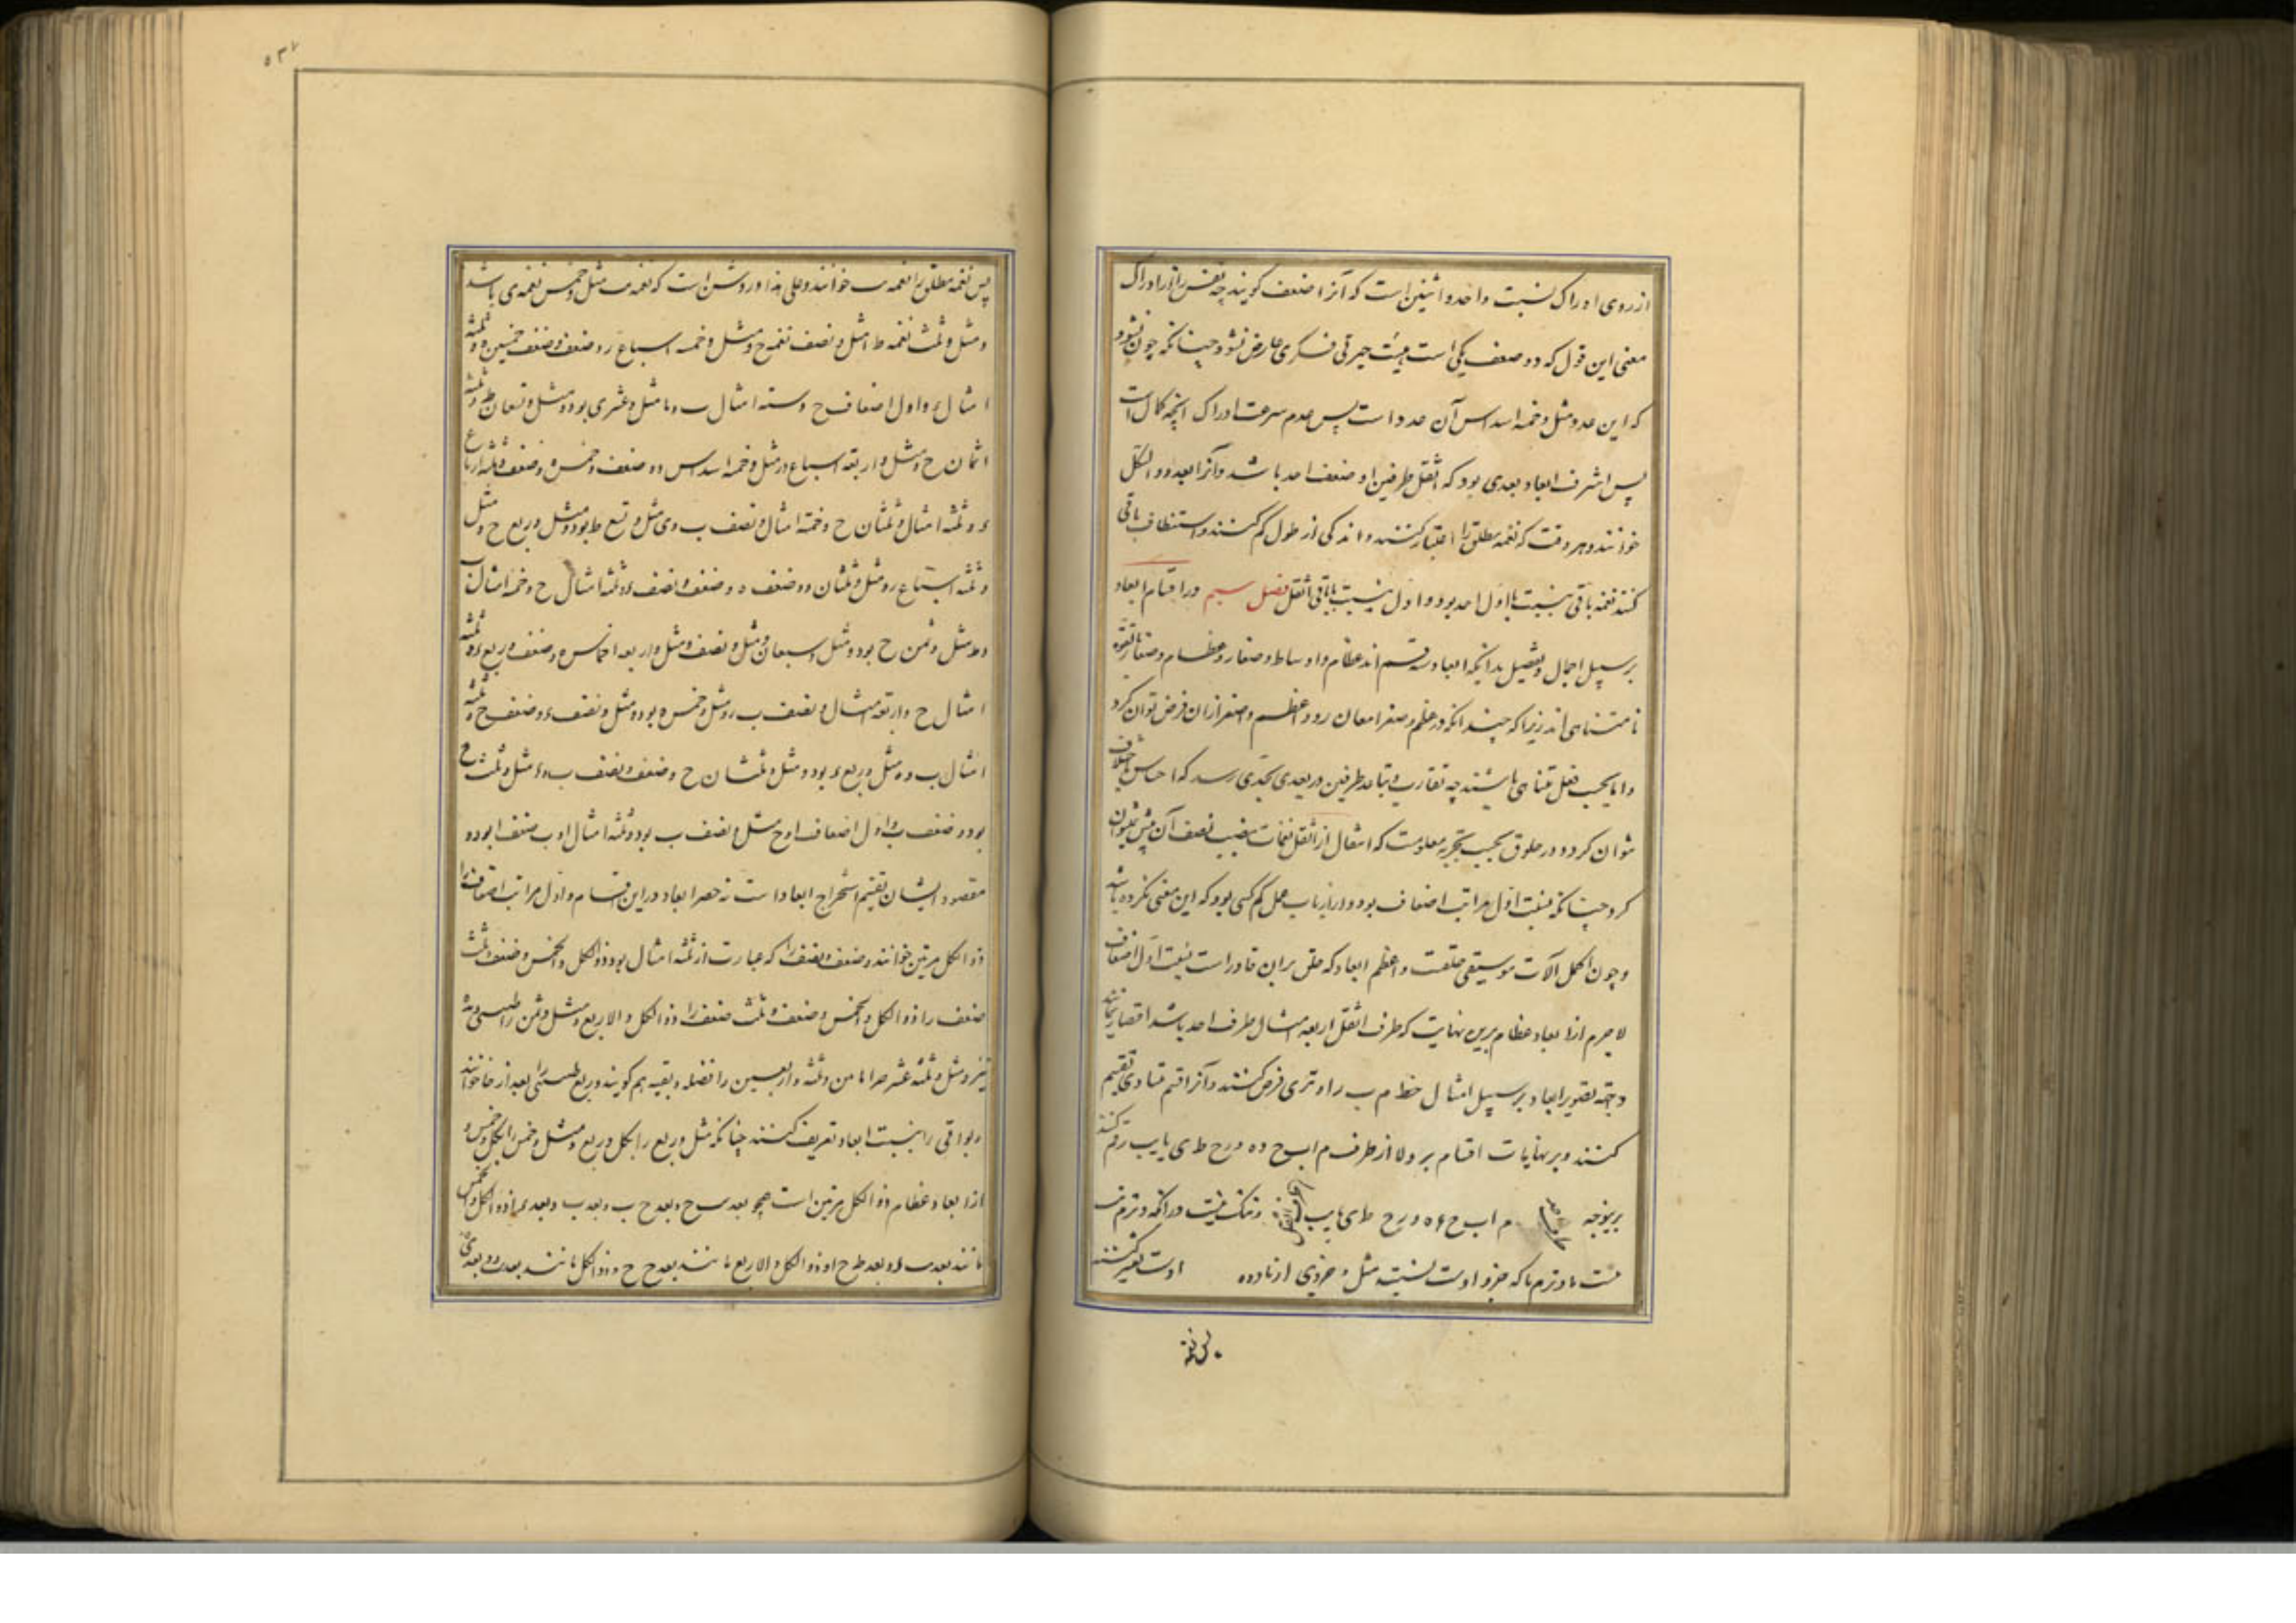 از روی ادراک نسبت واحد و اثنین است که آنرا ضعف کویند چه نفس را در ادراک
معنی این قول که دو ضعف یکی است هیئت حیرتی فکری عارض نشود چنانکه چون نشود
که این عدد مثل و خمسه اسداس آن عدد است پس عدم سرعت ادراک انچه کمال است
پس اشرف ابعاد بعدی بود که اثقل طرفین او ضعف احد باشد و آنرا بعد ذو الکل
خوانند و هر وقت که نغمه مطلق را اعتبار کنند و اندکی از طول کم کنند و استنطاف باقی
کنند نغمه باقی بنسبت با اول احد بود و اول بنسبت با باقی اثقل فصل سیم در اقسام ابعاد
بر سبیل اجمال و تفصیل بدانکه ابعاد سه قسم اند عظام و اوساط و صغار و عظام و صغار بالقوه
نا متناهی اند زیرا که چندانکه در عظم و صغر امعان رود اعظم و اصغر از ان فرض توان کرد
و اما بحسب فعل متناهی باشند چه تقارب و تباعد طرفین در بعدی بحدی رسد که احساس باختلاف
نتوان کرد و در حلوق بحسب تجربه معلومست که انتقال از اثقل نغمات بنصف نصف آن بیش نتوان
کرد چنانکه بنسبت اول مراتب اضعاف بود و از ارباب عمل کم کسی بود که این معنی نکرده باشد
و چون اکمل آلات موسیقی حلقست و اعظم ابعاد که حلق بران قادر است بنسبت اول اضعاف
لاجرم از ابعاد عظام برین نهایت که طرف اثقل اربعه امثال طرف احد باشد اقتصار نمایند
و جهة تصویر ابعاد بر سبیل امثال خط ا م ب را وتری فرض کنند و آنرا قسم متساوی تقسیم
کنند و بر نهایات اقسام بر ولا از طرف م ا ب ح د ه و ر ح ط ی یا یب رقم کنند
برینوجه م ا ب ح د ه و ر ح ط ی یا یب و شک نیست در انکه وتر م ب
مست با وتر م یا که جزو اوست بنسبت مثل و جزوی از یازده اوست تعبیر کنند
پس نغمه
۵۳۷
پس نغمه مطلق را نغمه ب خوانند و علی هذا و روشن است که نغمه ب مثل و خمس نغمه ی باشد
و مثل و ثلث نغمه ط و مثل و نصف نغمه ح و مثل و خمسه اسباع ر و ضعف و و ضعف و خمسین ه و ثلثه
امثال د و اول اضعاف ح و سته امثال ب و یا مثل و عشر ی بود و مثل و تسعان ط و ثلثه
اثمان ح و مثل و اربعه اسباع ر و مثل و خمسه اسداس و و ضعف و خمس ه و ضعف و ثلثه ارباع
د و ثلثه امثال و ثلثان ح و خمسه امثال و نصف ب و ی مثل و تسع ط بود و مثل و ربع ح و مثل
و ثلثه اسباع ر و مثل و ثلثان و و ضعف ه و ضعف و نصف د و ثلثه امثال ح و خمسه امثال ب
و ط مثل و ثمن ح بود و مثل و سبعان ر و مثل و نصف و و مثل و اربعه اخماس ه و ضعف و ربع د و ثلثه
امثال ح و اربعه امثال و نصف ب و ر مثل و خمس ه بود و مثل و نصف د و ضعف ح و ثلثه
امثال ب و ه مثل و ربع د بود و مثل و ثلثان ح و ضعف و نصف ب و د مثل و ثلث ح
بود و ضعف ب و اول اضعاف ا و ح مثل و نصف ب بود و ثلثه امثال ا و ب ضعف ا بود و
مقصود ایشان تقسیم استخراج ابعاد است نه حصر ابعاد در این اقسام و اول مراتب اضعاف را
ذو الکل مرتین خوانند و ضعف و نصف را که عبارت از ثلثه امثال بود ذو الکل و الخمس و ضعف و ثلث
ضعف را ذو الکل و الخمس و ضعف و ثلث ضعف را ذو الکل و الاربع و مثل و ثمن را طنینی و مده
نیز و مثل و ثلثه عشر جزءا من و ثلثه و اربعین را فضله و بقیه هم کویند و ربع طنینی را بعد ارخا خوانند
و بواقی را بنسبت ابعاد تعریف کنند چنانکه مثل و ربع را بکل و ربع و مثل و خمس را بکل و خمس و
از ابعاد عظام ذو الکل مرتین است همچو بعد ب ح و بعد ح ب و بعد ب و بعد ذو الکل و الخمس
مانند بعد ب د و بعد ط ح ا و ذو الکل و الاربع مانند بعد ح ح و ذو الکل مانند بعد ب و و بعد ی